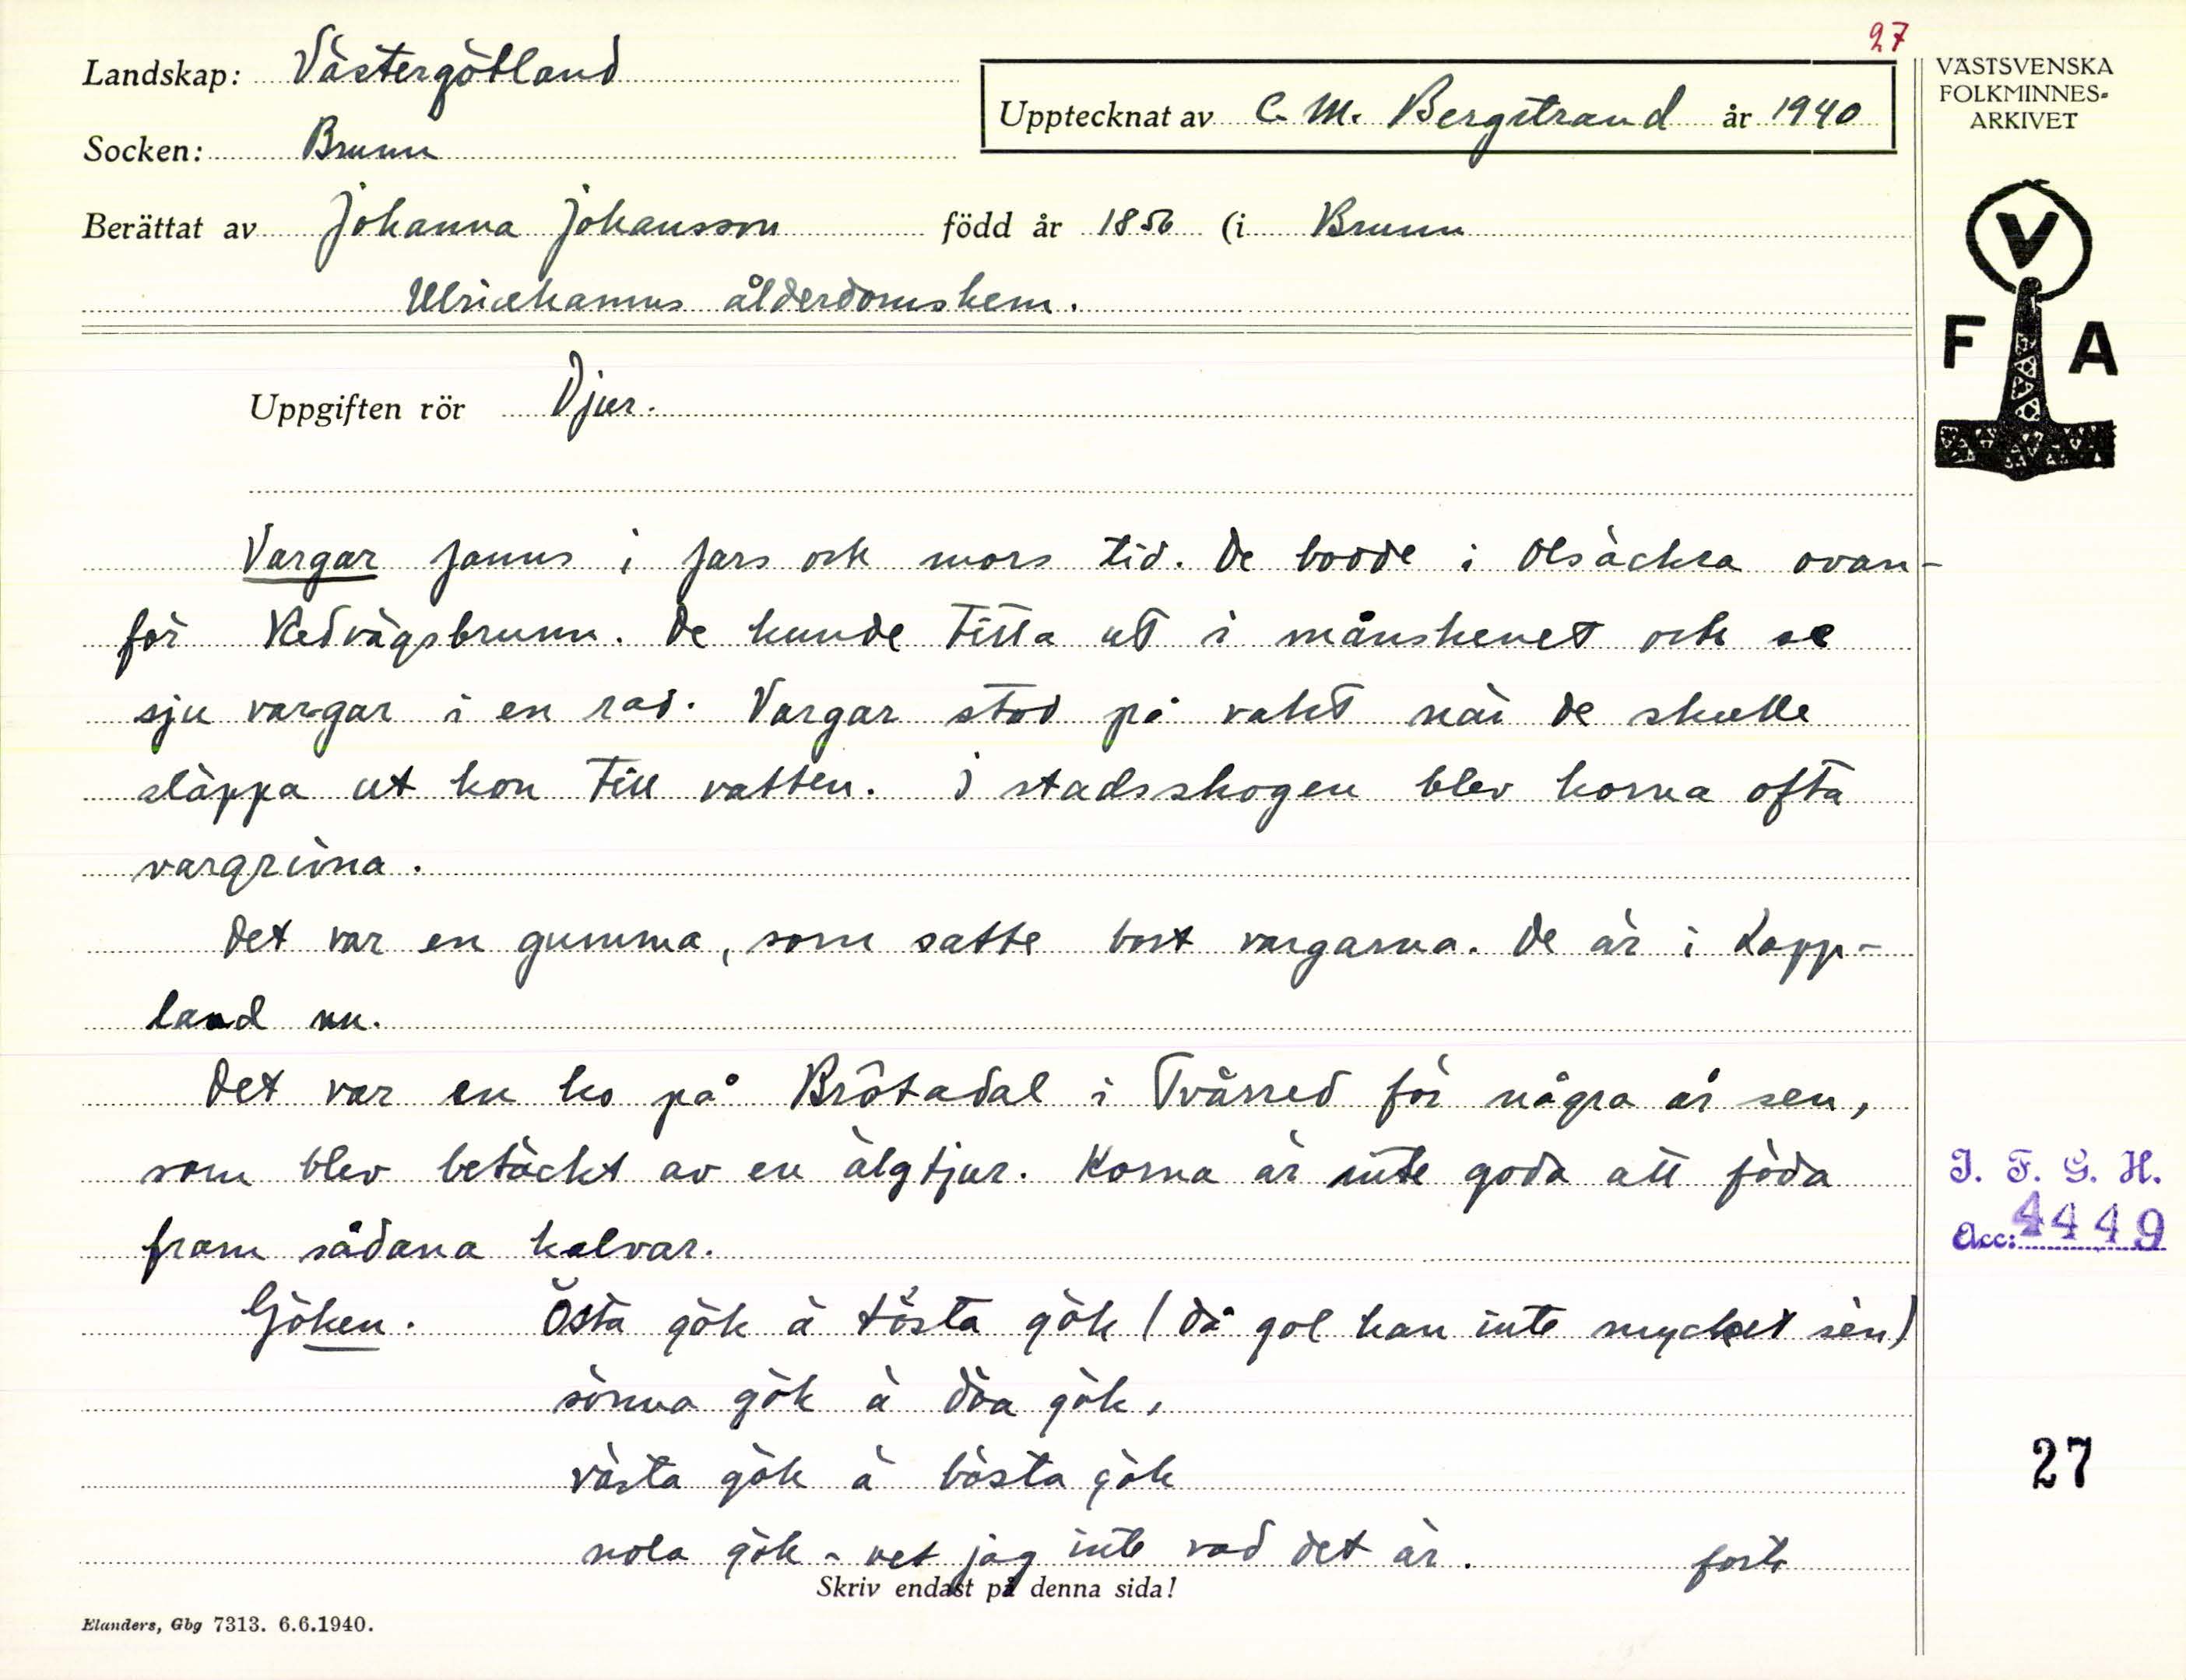 27
Landskap: Västergötland
Socken: Brunn
Upptecknat av C. M. Bergstrand år 1940
VÄSTSVENSKA
FOLKMINNES-
ARKIVET
Berättat av Johanna Johansson född år 1856 (i Brunn
Ulricehamns ålderdomshem.
V
F A
Uppgiften rör Djur.
Vargar fanns i fars och mors tid. De bodde i Olsäckra ovan-
för Redvägsbrunn. De kunde titta ut i månskenet och se
sju vargar i en rad. Vargar stod på vakt när de skulle
släppa ut kon till vatten. I stadsskogen blev korna ofta
vargrivna.
Det var en gumma, som satte bort vargarna. De är i Lapp-
land nu.
Det var en ko på Brötadal i Tvärred för några år sen,
som blev betäckt av en älgtjur. Korna är inte goda att föda
fram sådana kalvar.
I. F. G. H.
Acc: 4449
Göken. Östa gök ä tösta gök (då gol han inte mycket sèn)
sönna gök ä döa gök,
västa gök ä bästa gök
27
nola gök - vet jag inte vad det är. forts
Skriv endast på denna sida!
Elanders, Gbg 7313. 6.6.1940.